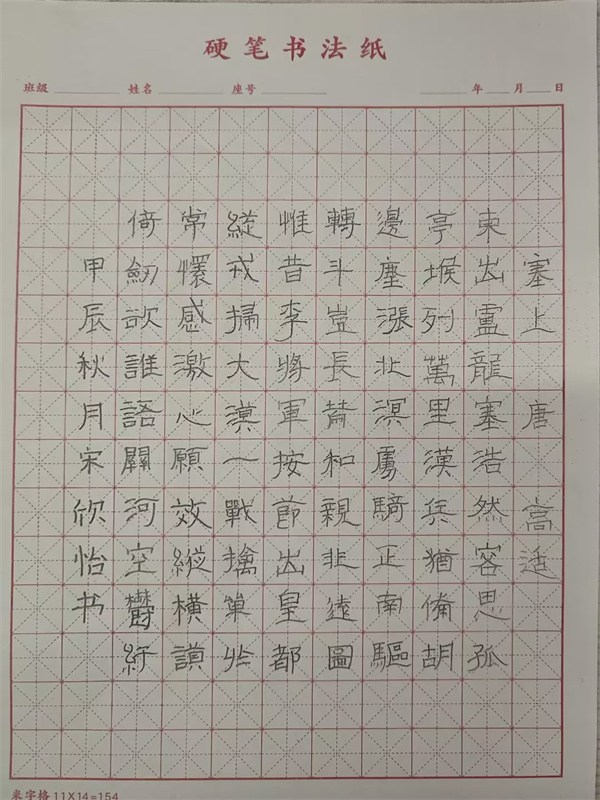 硬笔书法纸
班级 姓名 座号 年 月 日
塞上 唐 高适
東出盧龍塞浩然客思孤
亭堠列萬里漢兵猶備胡
邊塵漲北溟虜騎正南驅
轉斗豈長策和親非遠圖
惟昔李將軍按節出皇都
縱戎掃大漠一戰擒單於
常懷感激心願效縱橫謨
倚劍欲誰語關河空鬱紆
甲辰秋月宋欣怡书
米字格11X14=154